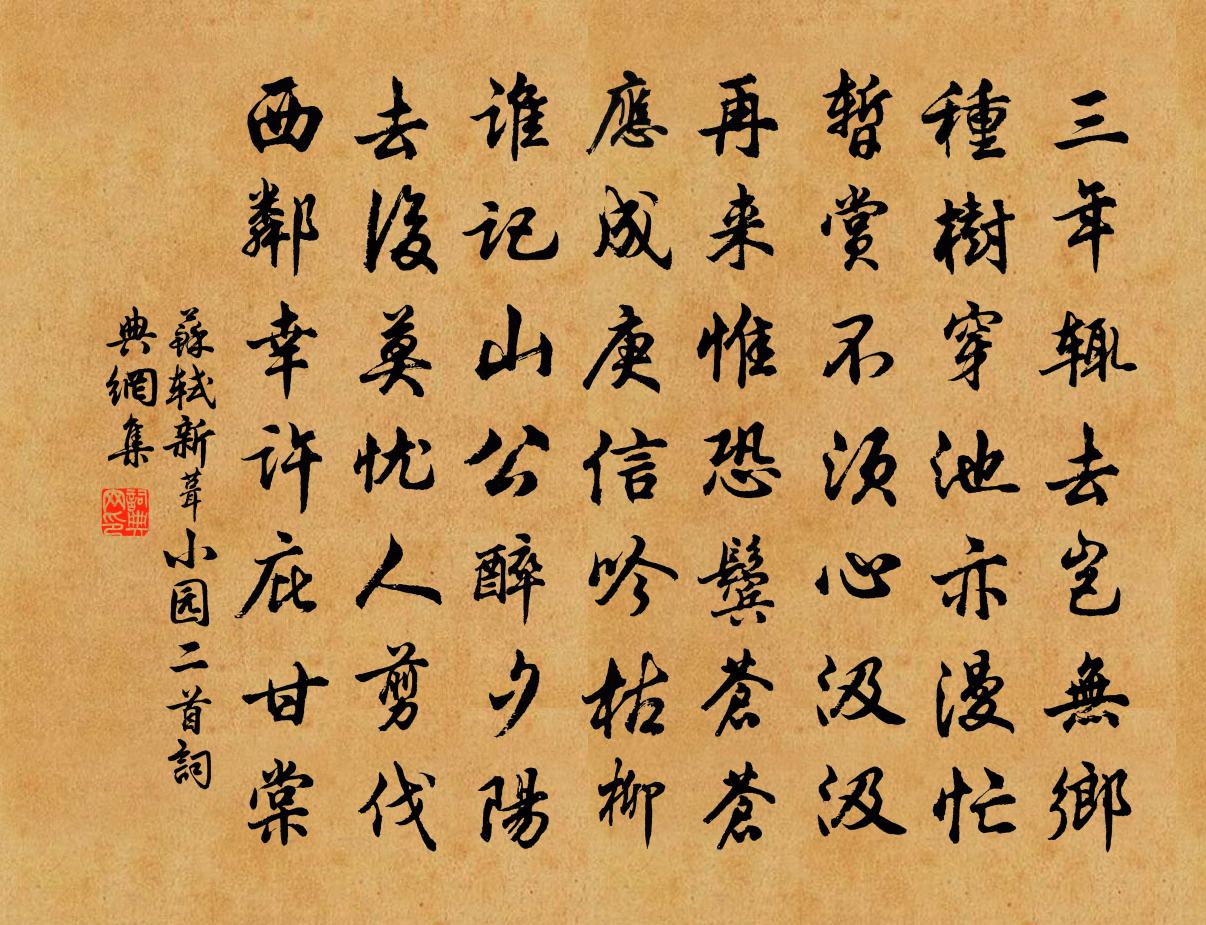 三年辄去岂無鄉
種樹穿池亦漫忙
暫賞不須心汲汲
再来惟恐鬢蒼蒼
應成庾信吟枯柳
谁记山公醉夕陽
去後莫忧人剪伐
西鄰幸许庇甘棠
蘇轼新葺小园二首詞
典網集
詞典网印